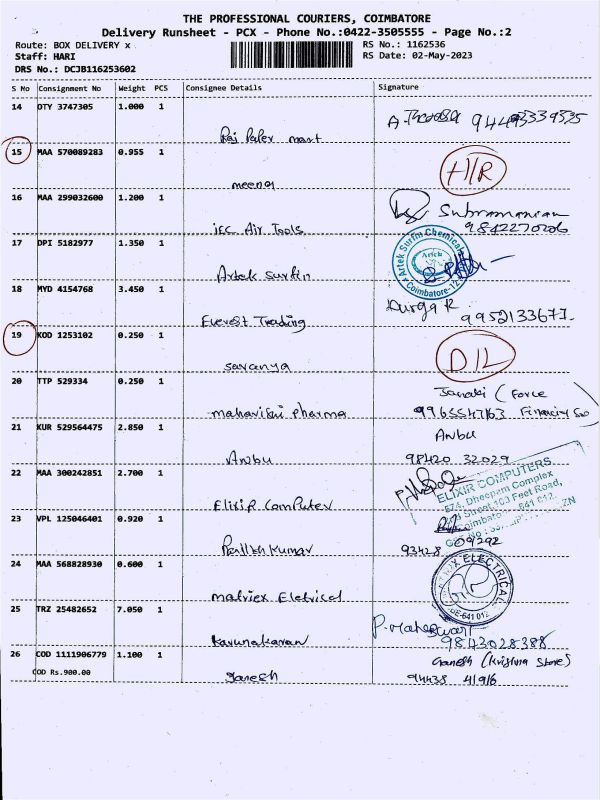 THE PROFESSIONAL COURIERS, COIMBATORE
Delivery Runsheet - PCX - Phone No.:0422-3505555 - Page No.:2
Route: BOX DELIVERY x RS No.: 1162536
Staff: HARI RS Date: 02-May-2023
DRS No.: DCJB116253602
S No Consignment No Weight PCS Consignee Details Signature
14 DTY 3747305 1.000 1
Raj Paper mart
15 MAA 570089283 0.955 1 H/R
meena
16 MAA 299032600 1.200 1 Subramanian
irc Air Tools 9842270206
17 DPI 5182977 1.350 1 Artek Surfin Chemicals
Artek
Artek Surfin Coimbatore-12
18 MYD 4154768 3.450 1 Durga R
Everest Trading 9952133677
19 KOD 1253102 0.250 1 D/L
saranya
20 TTP 529334 0.250 1 Janaki (Force
mahavishi pharma 9965547163
21 KUR 529564475 2.850 1 Anbu
Anbu 98420 32029
22 MAA 300242851 2.700 1 ELIXIR COMPUTERS
674, Dheepam Complex
Street, 103 Feet Road,
Elixir Computer
23 VPL 125046401 0.920 1
93428 09292
24 MAA 568828930 0.600 1 ELECTRICAL
matriex Eletrical
25 TRZ 25482652 7.050 1 P. Maheswari
Karunakaran 9843028388
26 COD 1111906779 1.100 1 Ganesh (Krishna Store)
COD Rs.900.00 Ganesh 94438 41916